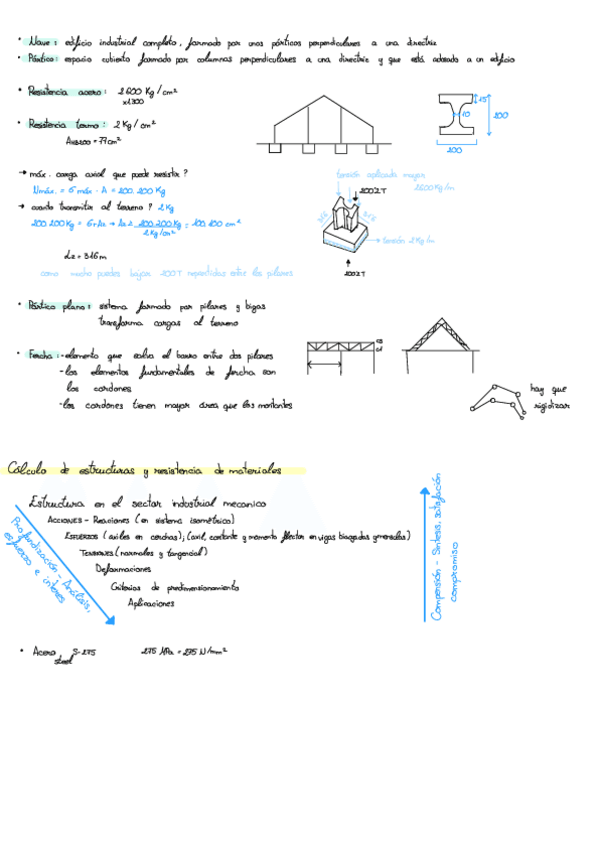 • Nave: edificio industrial completo, formado por unos pórticos perpendiculares a una directriz
• Pórtico: espacio cubierto formado por columnas perpendiculares a una directriz y que está adosado a un edificio
• Resistencia acero: 2600 Kg/cm²
x1300
• Resistencia terreno: 2 Kg/cm²
A = 77 cm²
15
10
200
200
→ máx. carga axial que puede resistir?
Nmáx. = σ máx · A = 200.200 Kg
→ cuanto transmitir al terreno? 2 Kg
200 200 Kg = σ · A → A = 200 200 Kg / 2 Kg/cm² = 100 100 cm²
L = 316 m
como mucho puedes bajar 200T repartidas entre los pilares
tensión aplicada mayor
2600 Kg/m
200'2T
316
316
tensión 2 Kg/m
200'2T
• Pórtico plano: sistema formado por pilares y vigas
transforma cargas al terreno
• Cercha: -elemento que salva el vano entre dos pilares
-los elementos fundamentales de cercha son
los cordones
-los cordones tienen mayor área que los montantes
cs
ci
hay que
rigidizar
Cálculo de estructuras y resistencia de materiales
Estructura en el sector industrial mecanico
ACCIONES - Reaciones (en sistema isométrico)
ESFUERZOS (axiles en cerchas); (axil, cortante y momento flector en vigas biapoyadas y mensulas)
TENSIONES (normales y tangencial)
Deformaciones
Criterios de predimensionamiento
Aplicaciones
Profundización - Análisis,
esfuerzo e interes
Compensión - Síntesis, satisfación
compromiso
• Acero S-275 275 MPa = 275 N/mm²
steel